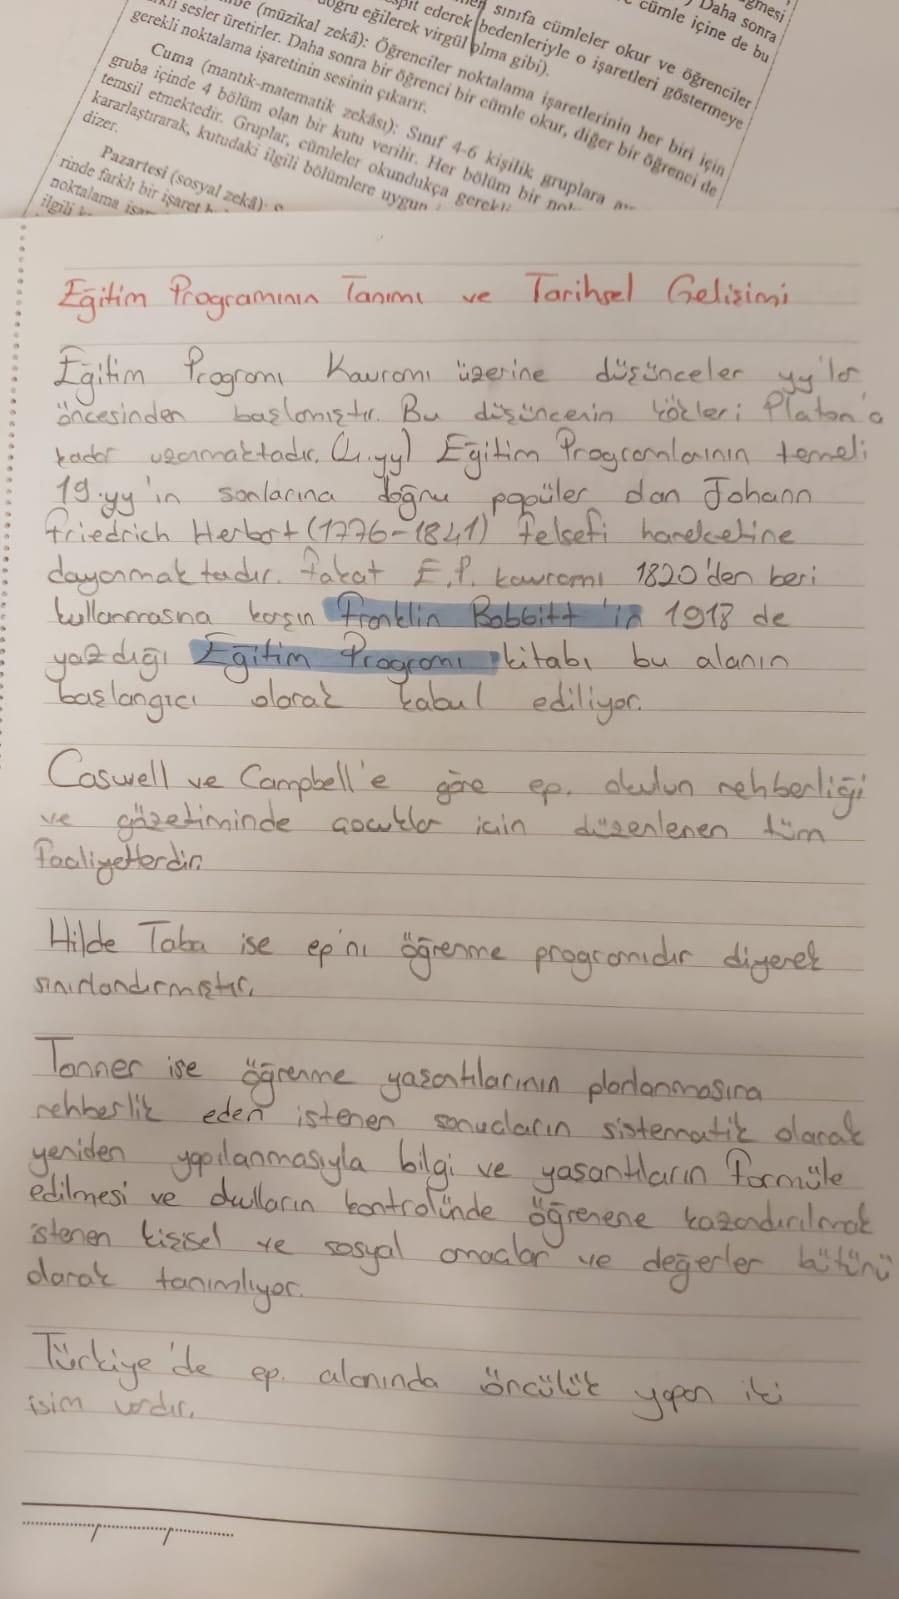 sınıfa cümleler okur ve öğrenciler
bedenleriyle o işaretleri göstermeye
doğru eğilerek virgül olma gibi).
(müzikal zekâ): Öğrenciler noktalama işaretlerinin her biri için
sesler üretirler. Daha sonra bir öğrenci bir cümle okur, diğer bir öğrenci de
gerekli noktalama işaretinin sesinin çıkarır.
Cuma (mantık-matematik zekâsı): Sınıf 4-6 kişilik gruplara
gruba içinde 4 bölüm olan bir kutu verilir. Her bölüm bir
temsil etmektedir. Gruplar, cümleler okundukça
kararlaştırarak, kutudaki ilgili bölümlere uygun
dizer.
Pazartesi (sosyal zekâ):
rinde farklı bir işaret
noktalama
Eğitim Programının Tanımı ve Tarihsel Gelişimi
Eğitim Programı Kavramı üzerine düşünceler yy'lar
öncesinden başlamıştır. Bu düşüncenin kökleri Platon'a
kadar uzanmaktadır. (4.yy) Eğitim Programlarının temeli
19.yy'ın sonlarına doğru popüler olan Johann
Friedrich Herbart (1776-1841) felsefi hareketine
dayanmaktadır. Fakat E.P. kavramı 1820'den beri
kullanmasına karşın Franklin Bobbitt'in 1918 de
yazdığı Eğitim Programı kitabı bu alanın
başlangıcı olarak kabul ediliyor.
Caswell ve Campbell'e göre ep. okulun rehberliği
ve gözetiminde çocuklar için düzenlenen tüm
faaliyetlerdir.
Hilde Taba ise ep'nı öğrenme programıdır diyerek
sınırlandırmıştır.
Tanner ise öğrenme yaşantılarının planlanmasına
rehberlik eden istenen sonuçların sistematik olarak
yeniden yapılanmasıyla bilgi ve yaşantıların formüle
edilmesi ve okulların kontrolünde öğrenene kazandırılmak
istenen kişisel ve sosyal amaçlar ve değerler bütünü
olarak tanımlıyor.
Türkiye'de ep. alanında öncülük yapan iki
isim vardır.